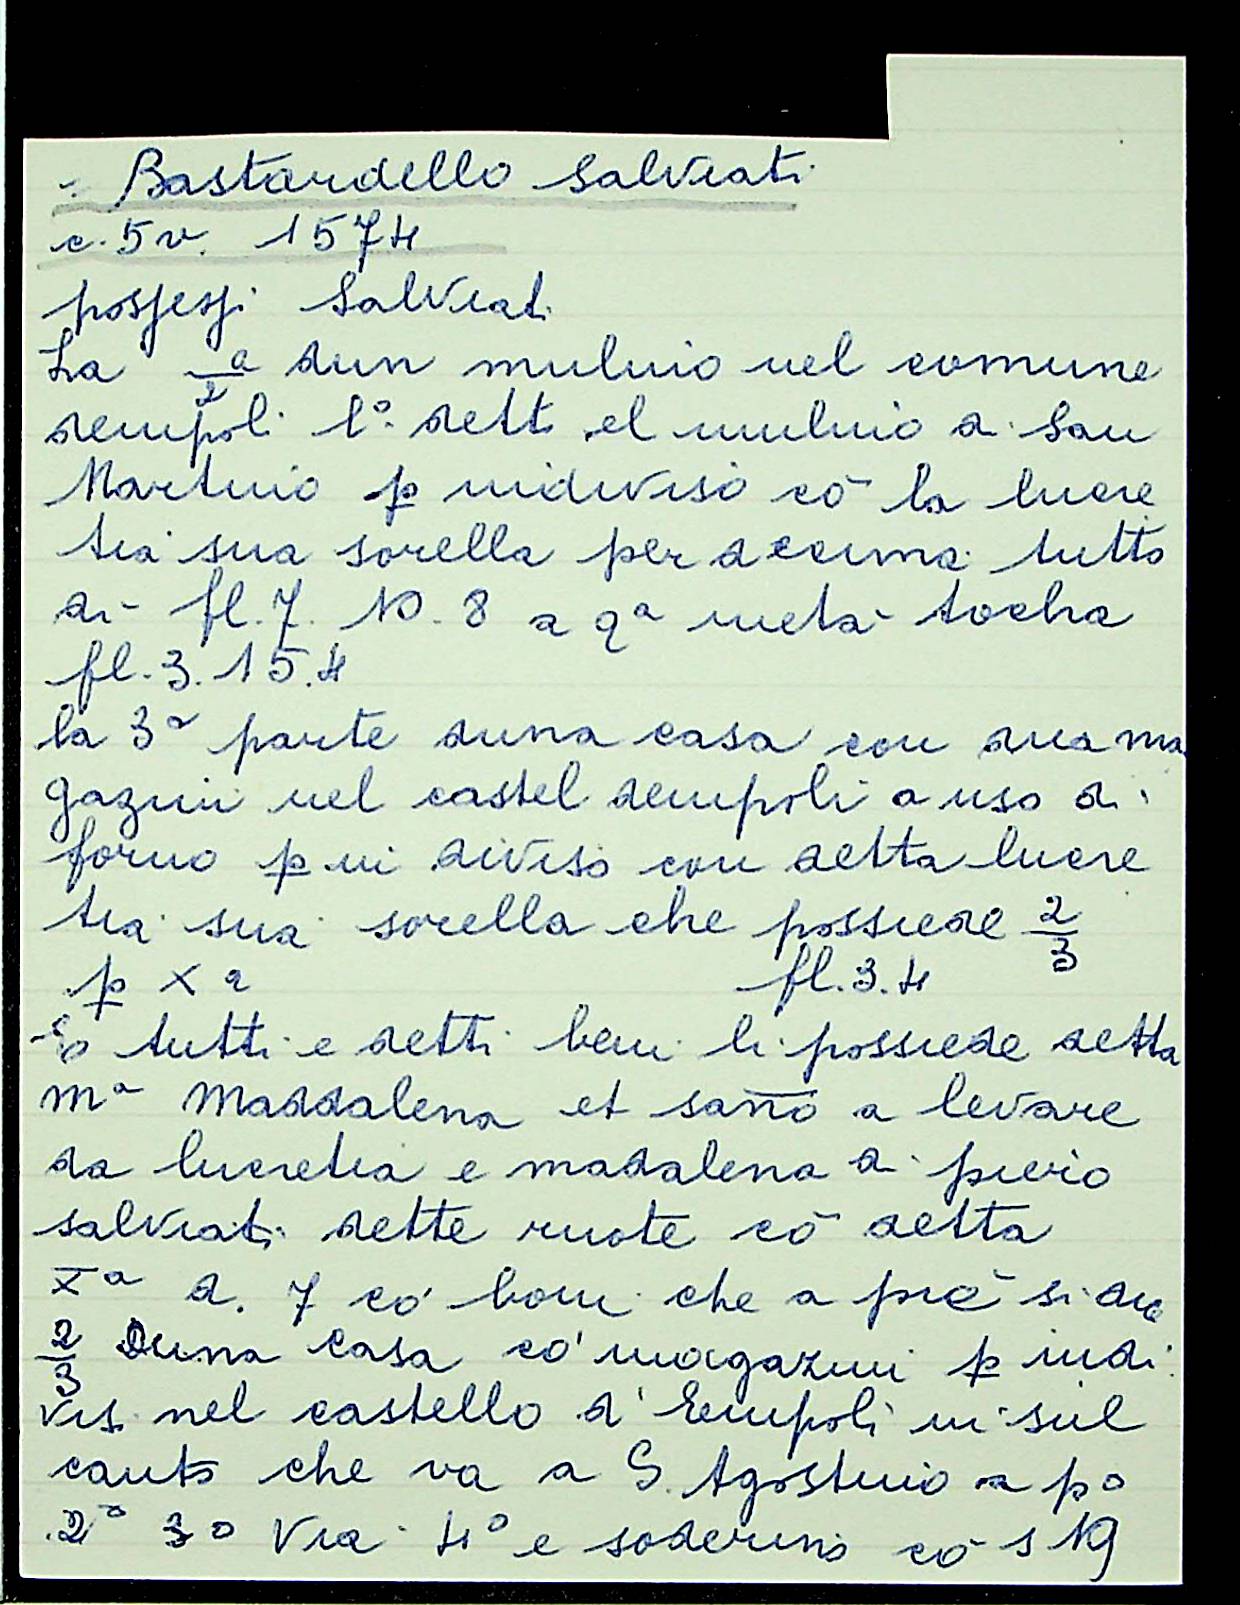 Bastardello Salviati
c. 5 v. 1574
possessi Salviati
La ᵃ/2 dun mulino nel comune
dempoli l° detto el mulino di San
Martino p indiviso cō la lucre
tia sua sorella per decima tutto
di fl. 7. 10. 8 a qª metà tocha
fl. 3. 15. 4
la 3ª parte duna casa con dua ma
gazini nel castel dempoli a uso di
forno p in diviso con detta lucre
tia sua sorella che possiede 2/3
p X a fl. 3. 4
E tutti e detti beni li possiede detta
mª Maddalena et sanño a levare
da lucretia e madalena di piero
salviati dette ruote cō detta
Xª d. 7 co' boni che a piè si dice
2/3 Duna casa co' magazini p indi
vis. nel castello d'Empoli in sul
canto che va a S. Agostino a p°
2° 3° Via 4° e soderini cō s 19